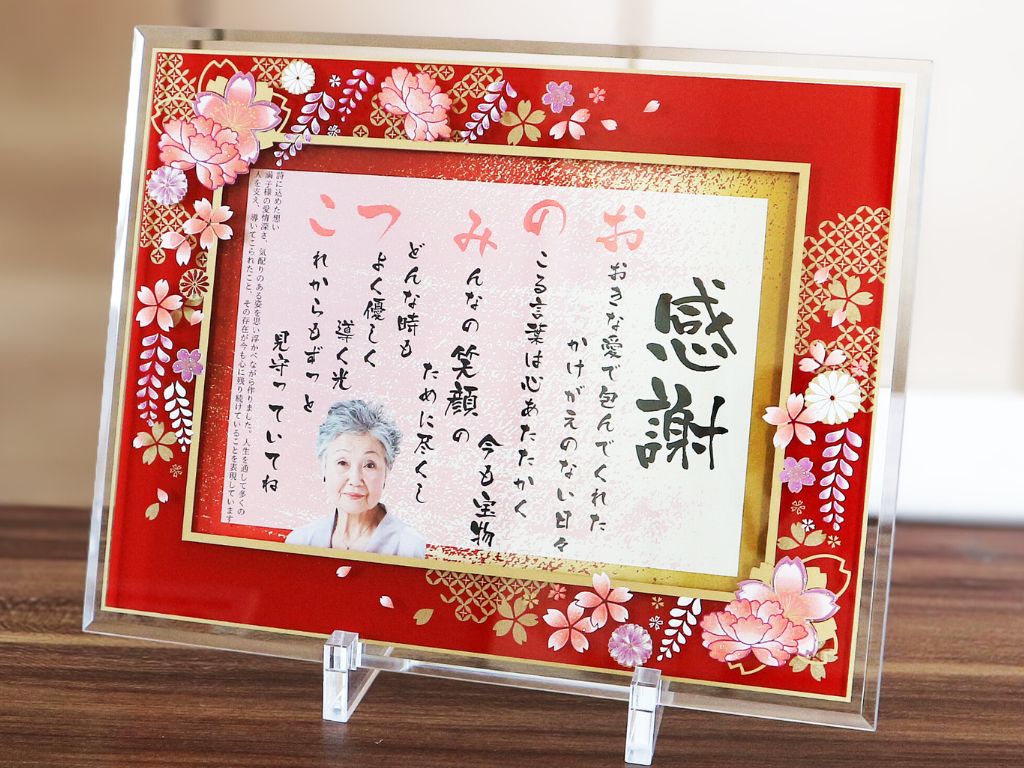 感謝
おおきな愛で包んでくれた
かけがえのない日々
のこる言葉は心あたたかく
今も宝物
みんなの笑顔の
ために尽くし
どんな時も
つよく優しく
導く光
これからもずっと
見守っていてね
詩に込めた想い
満子様の愛情深さ、気配りのある姿を思い浮かべながら作りました。人生を通して多くの
人を支え、導いてこられたこと、その存在が今も心に残り続けていることを表現しています